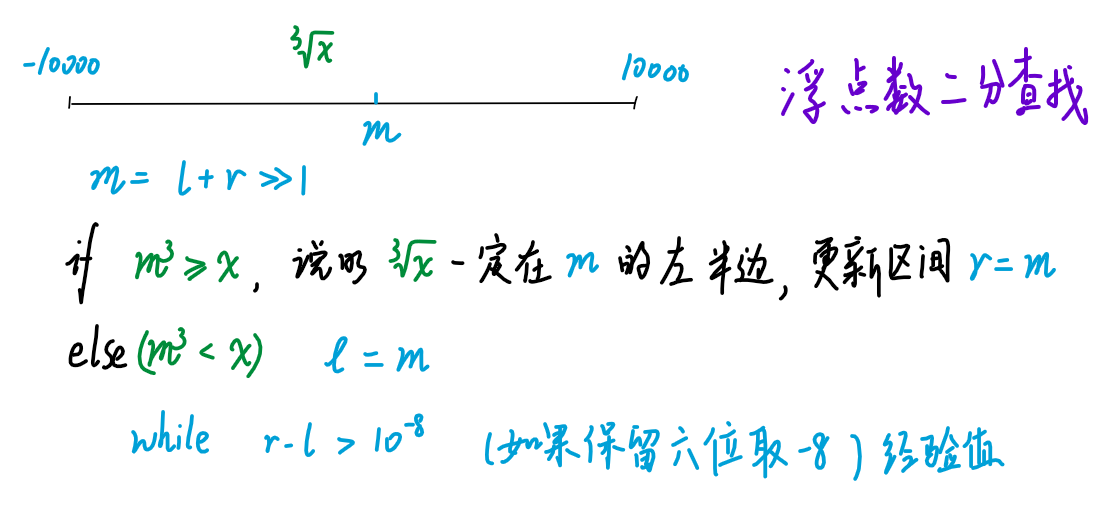 ∛x
-10000
10000
浮点数二分查找
m
m = l + r >> 1
if m³ ≥ x, 说明 ∛x 一定在 m 的左半边, 更新区间 r = m
else (m³ < x) l = m
while r - l > 10⁻⁸ (如果保留六位取 -8) 经验值